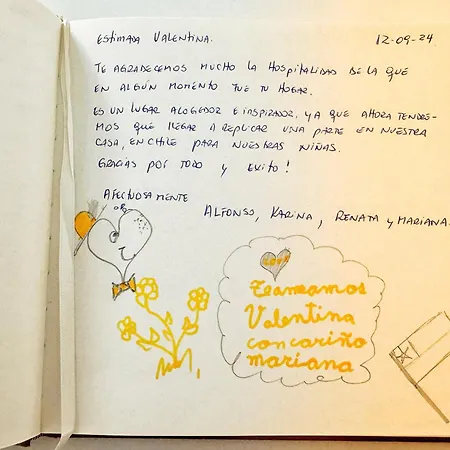 Estimada Valentina. 12-09-24
Te agradecemos mucho la hospitalidad de la que
en algún momento fue tu hogar.
Es un lugar acogedor e inspirador, ya que ahora tendre-
mos que llegar a replicar una parte en nuestra
casa, en Chile para nuestras niñas.
Gracias por todo y exito!
Afectuosamente
Alfonso, Karina, Renata y Mariana.
teamamos
Valentina
concariño
mariana